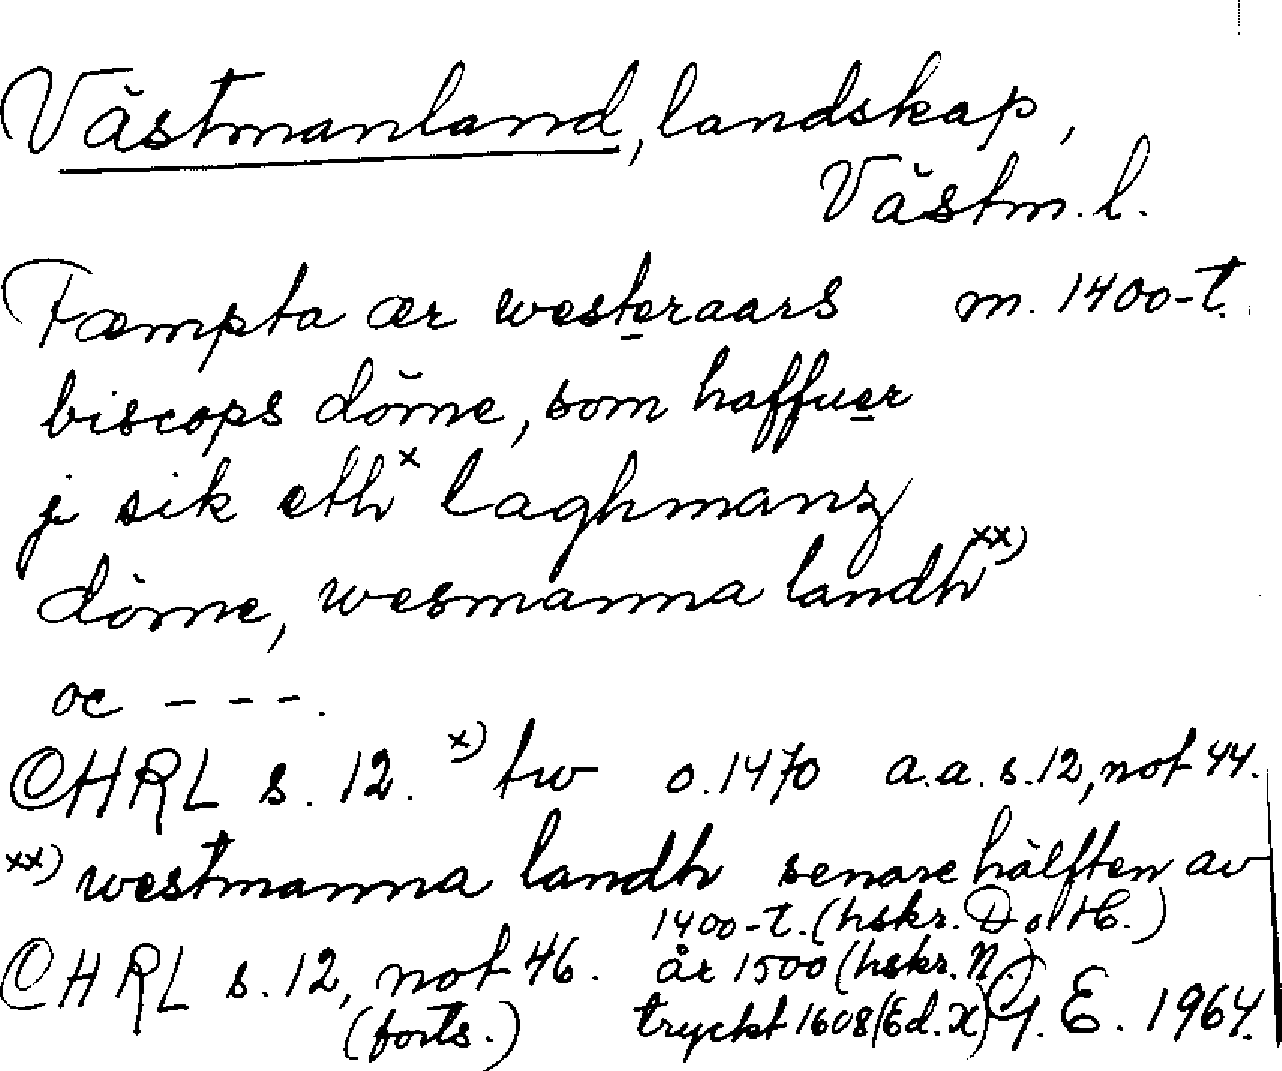 Västmanland, landskap,
Västm. l.
Fæmpta ær westeraars m. 1400-t.
biscops döme, som haffuer
j sik eth x laghmanz
döme, wesmanna landh xx)
oc - - - .
CHRL s. 12. x) tw o. 1470 a.a. s. 12, not 44.
xx) westmanna landh senare hälften av
1400-t. (hskr. D o. H.)
CHRL s. 12, not 46. år 1500 (hskr. N)
(forts.) tryckt 1608 (Ed. X) G. E. 1964.